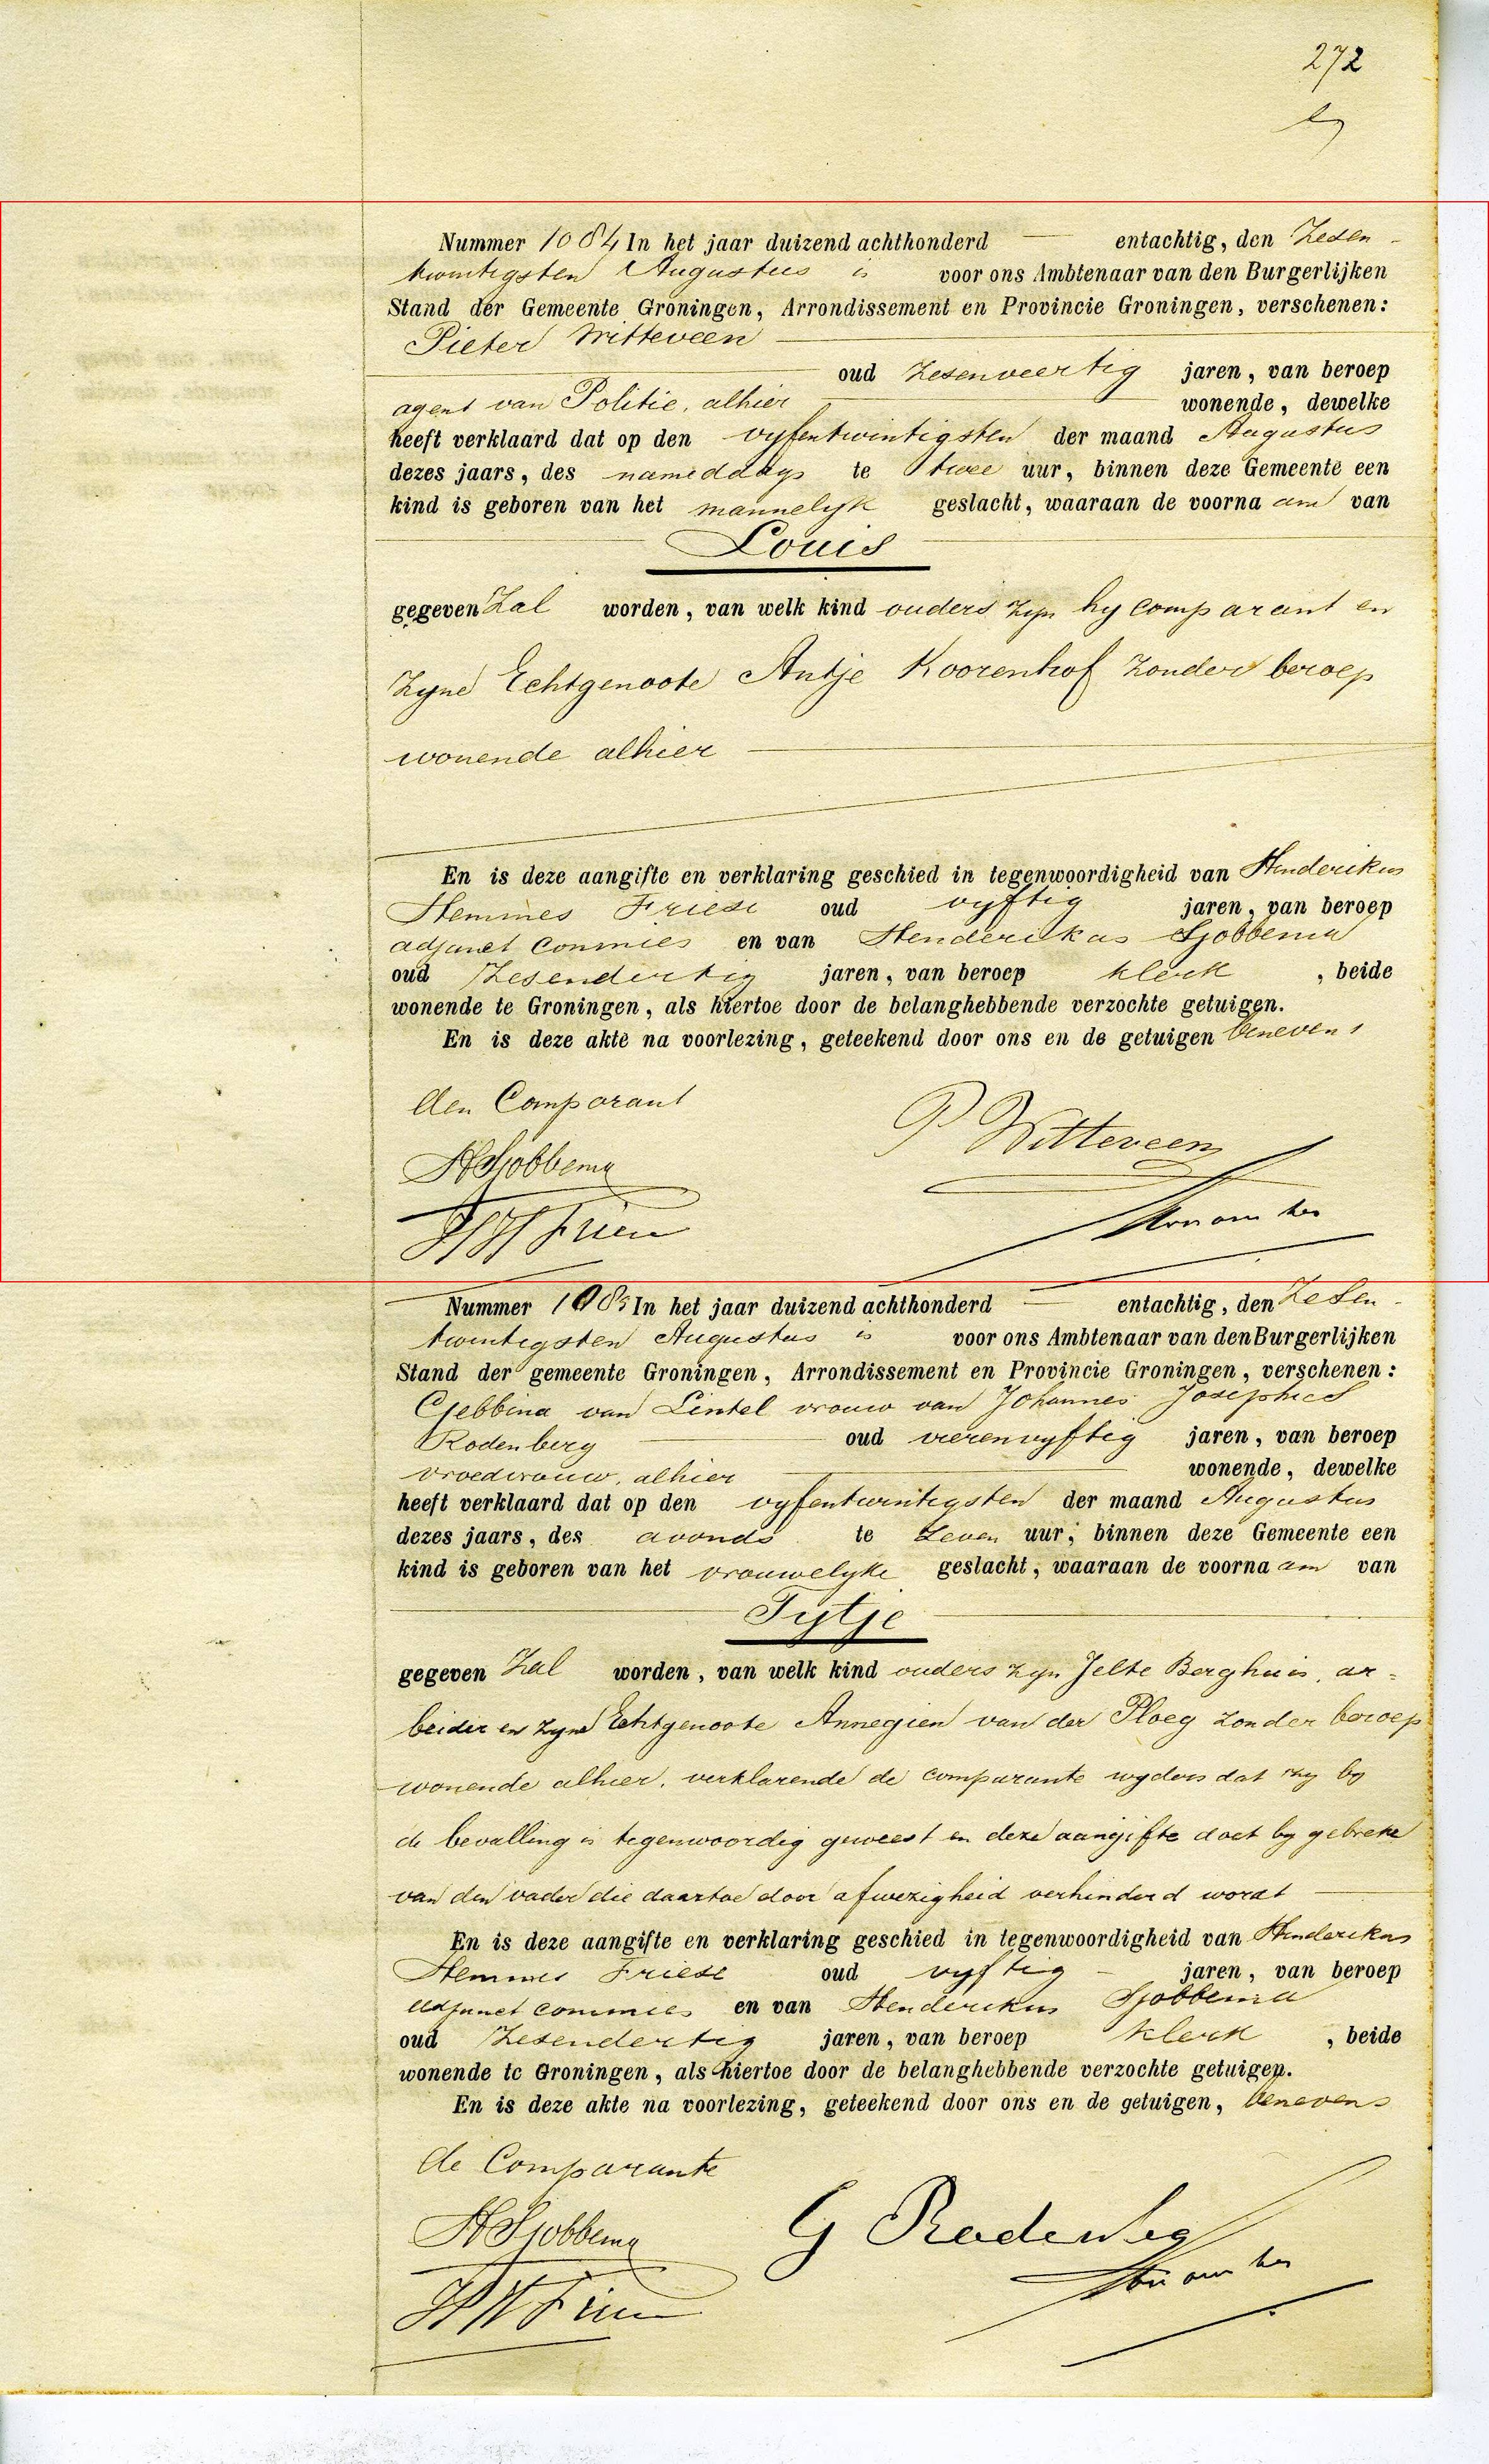 272
Nummer 1084 In het jaar duizend achthonderd — entachtig, den Zesen-
twintigsten Augustus is voor ons Ambtenaar van den Burgerlijken
Stand der Gemeente Groningen, Arrondissement en Provincie Groningen, verschenen:
Pieter Witteveen
oud Zesenveertig jaren, van beroep
agent van Politie, alhier wonende, dewelke
heeft verklaard dat op den vyfentwintigsten der maand Augustus
dezes jaars, des namiddags te twee uur, binnen deze Gemeente een
kind is geboren van het mannelyk geslacht, waaraan de voornaam van
Louis
gegeven Zal worden, van welk kind ouders zyn hy comparant en
Zyne Echtgenoote Antje Koorenhof Zonder beroep
wonende alhier
En is deze aangifte en verklaring geschied in tegenwoordigheid van Henderikus
Hemmes Friese oud vyftig jaren, van beroep
adjunct commies en van Henderikus Sjobbema
oud Zesendertig jaren, van beroep klerk, beide
wonende te Groningen, als hiertoe door de belanghebbende verzochte getuigen.
En is deze akte na voorlezing, geteekend door ons en de getuigen benevens
den Comparant
P Witteveen
HSjobbema
HHFriese
Nummer 1085 In het jaar duizend achthonderd — entachtig, den Zesen-
twintigsten Augustus is voor ons Ambtenaar van den Burgerlijken
Stand der gemeente Groningen, Arrondissement en Provincie Groningen, verschenen:
Gebbina van Lintel vrouw van Johannes Josephus
Rodenberg oud vierenvyftig jaren, van beroep
vroedvrouw, alhier wonende, dewelke
heeft verklaard dat op den vyfentwintigsten der maand Augustus
dezes jaars, des avonds te Zeven uur, binnen deze Gemeente een
kind is geboren van het vrouwelyke geslacht, waaraan de voornaam van
Tytje
gegeven Zal worden, van welk kind ouders zyn Jelte Berghuis, ar=
beider en zyne Echtgenoote Annegien van der Ploeg Zonder beroep
wonende alhier, verklarende de comparante wyders dat zy by
de bevalling is tegenwoordig geweest en deze aangifte doet by gebreke
van den vader die daartoe door afwezigheid verhinderd wordt
En is deze aangifte en verklaring geschied in tegenwoordigheid van Henderikus
Hemmes Friese oud vyftig jaren, van beroep
adjunct commies en van Henderikus Sjobbema
oud Zesendertig jaren, van beroep klerk, beide
wonende te Groningen, als hiertoe door de belanghebbende verzochte getuigen.
En is deze akte na voorlezing, geteekend door ons en de getuigen, benevens
de Comparante
HSjobbema G Rodenberg
HHFriese